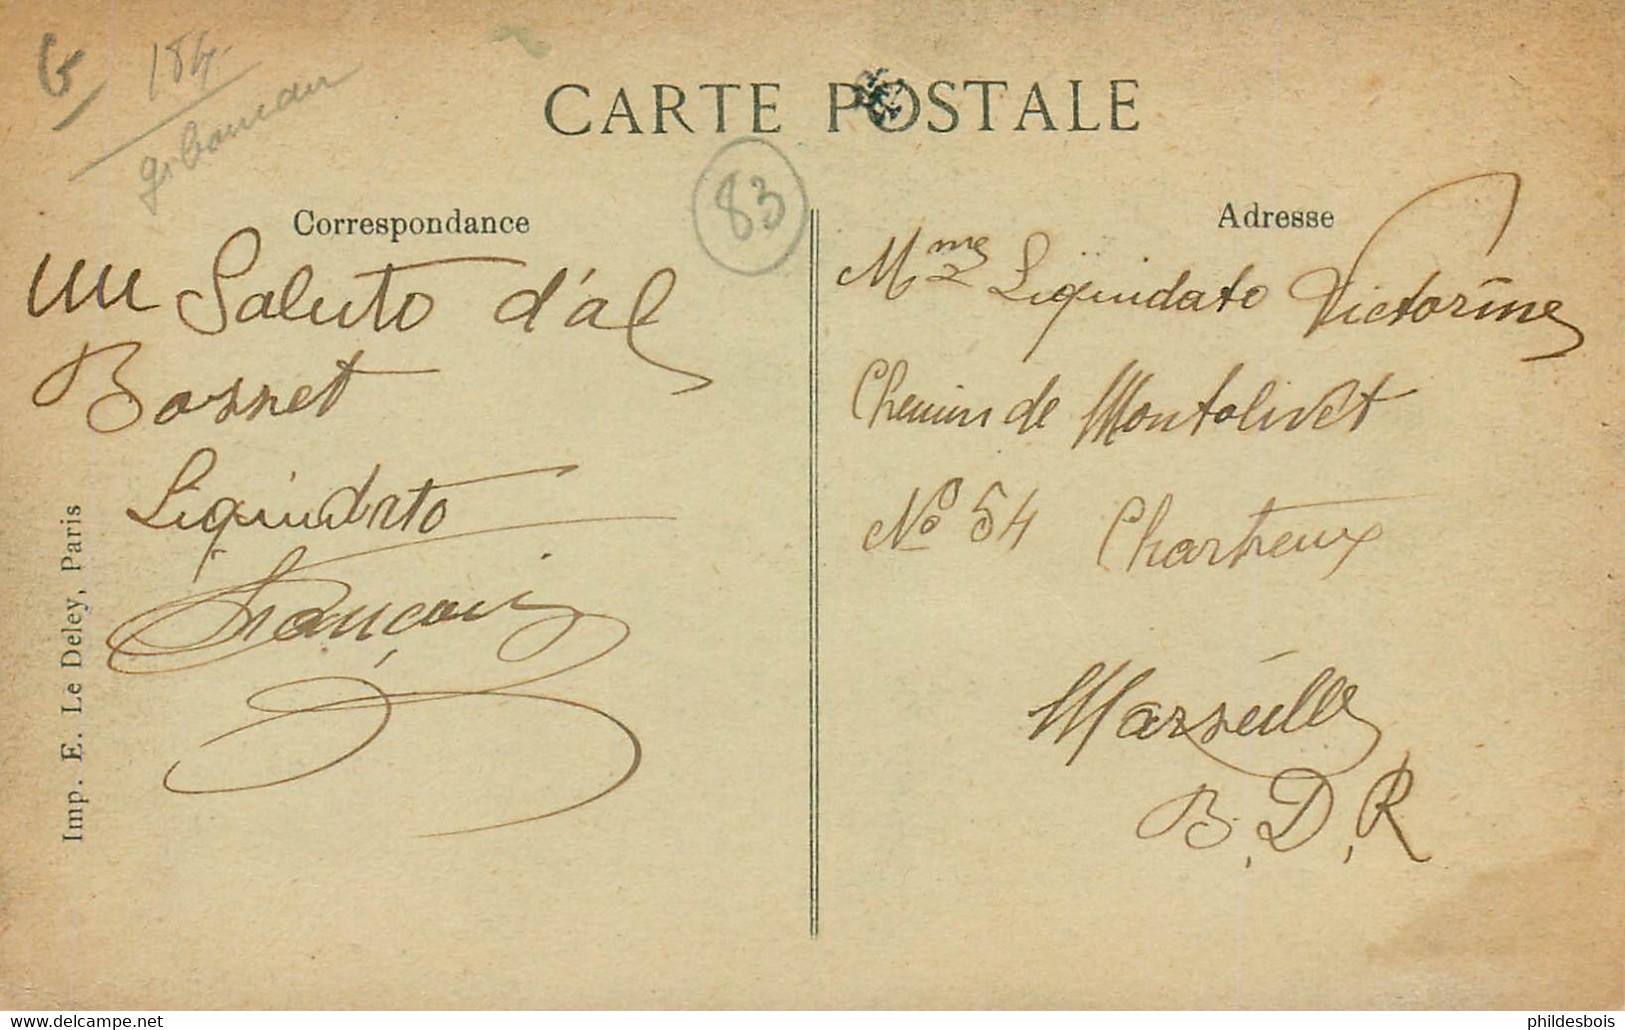 G 184
CARTE POSTALE
83
Correspondance
un Saluto d'al
Bosnet
Liquidato
François
Imp. E. Le Deley, Paris
Adresse
Mme Liquidato Victorine
Chemin de Montolivet
No 54 Chartreux
Marseille
B.D.R
www.delcampe.net
phildesbois